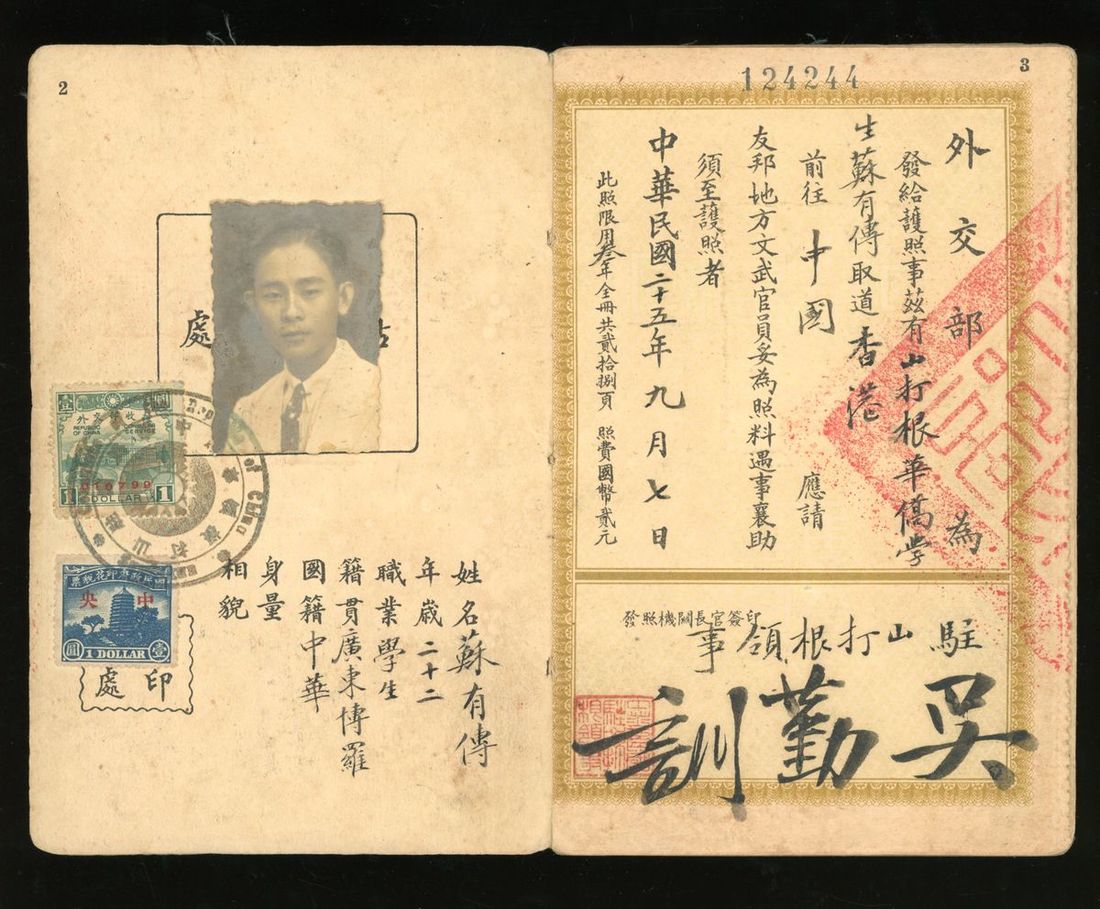 3
124244
外交部為
發給護照事茲有山打根華僑學
生蘇有傳取道香港
前往中國　　應請
友邦地方文武官員妥為照料遇事襄助
須至護照者
中華民國二十五年九月七日
此照限用叁年全冊共貳拾捌頁 照費國幣貳元
發照機關長官簽印
駐山打根領事
吳勤訓
2
處
姓名蘇有傳
年歲二十二
職業學生
籍貫廣東博羅
國籍中華
身量
相貌
壹 圓
REPUBLIC OF CHINA
CONSULAR SERVICE
010799
1 DOLLAR 1
國民政府印花稅票
中央
圓 1 DOLLAR 壹
印處